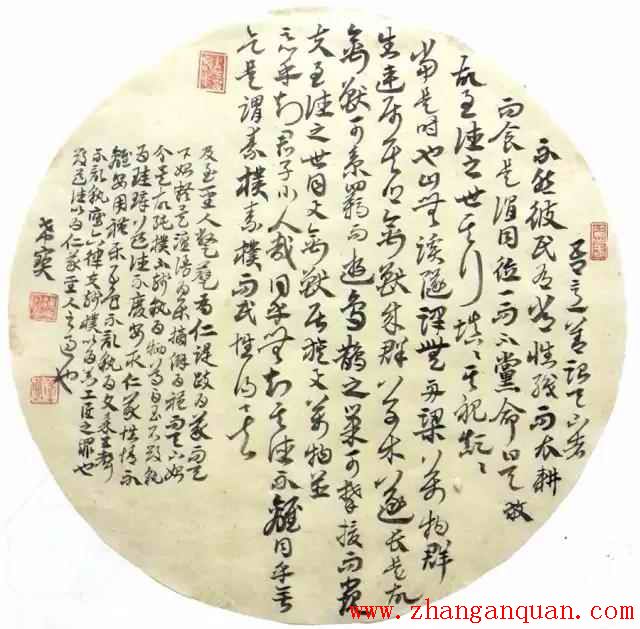 吾意善治天下者
不然彼民有常性織而衣耕
而食是謂同德一而不黨命曰天放
故至德之世其行填〻其視顛〻
當是時也山無蹊隧澤無舟梁萬物群
生連屬其鄉禽獸成群草木遂長是故
禽獸可系羈而遊鳥鵲之巢可攀援而窺
夫至德之世同與禽獸居族與萬物並
惡乎知君子小人哉同乎無知其德不離同乎無
欲是謂素樸素樸而民性得矣
及至聖人蹩躠為仁踶跂為義而天
下始疑矣澶漫為樂摘僻為禮而天下始
分矣故純樸不殘孰為犧尊白玉不毀孰
為珪璋道德不廢安取仁義性情不
離安用禮樂五色不亂孰為文采五聲
不亂孰應六律夫殘樸以為器工匠之罪也
毀道德以為仁義聖人之過也
www.zhanganquan.com